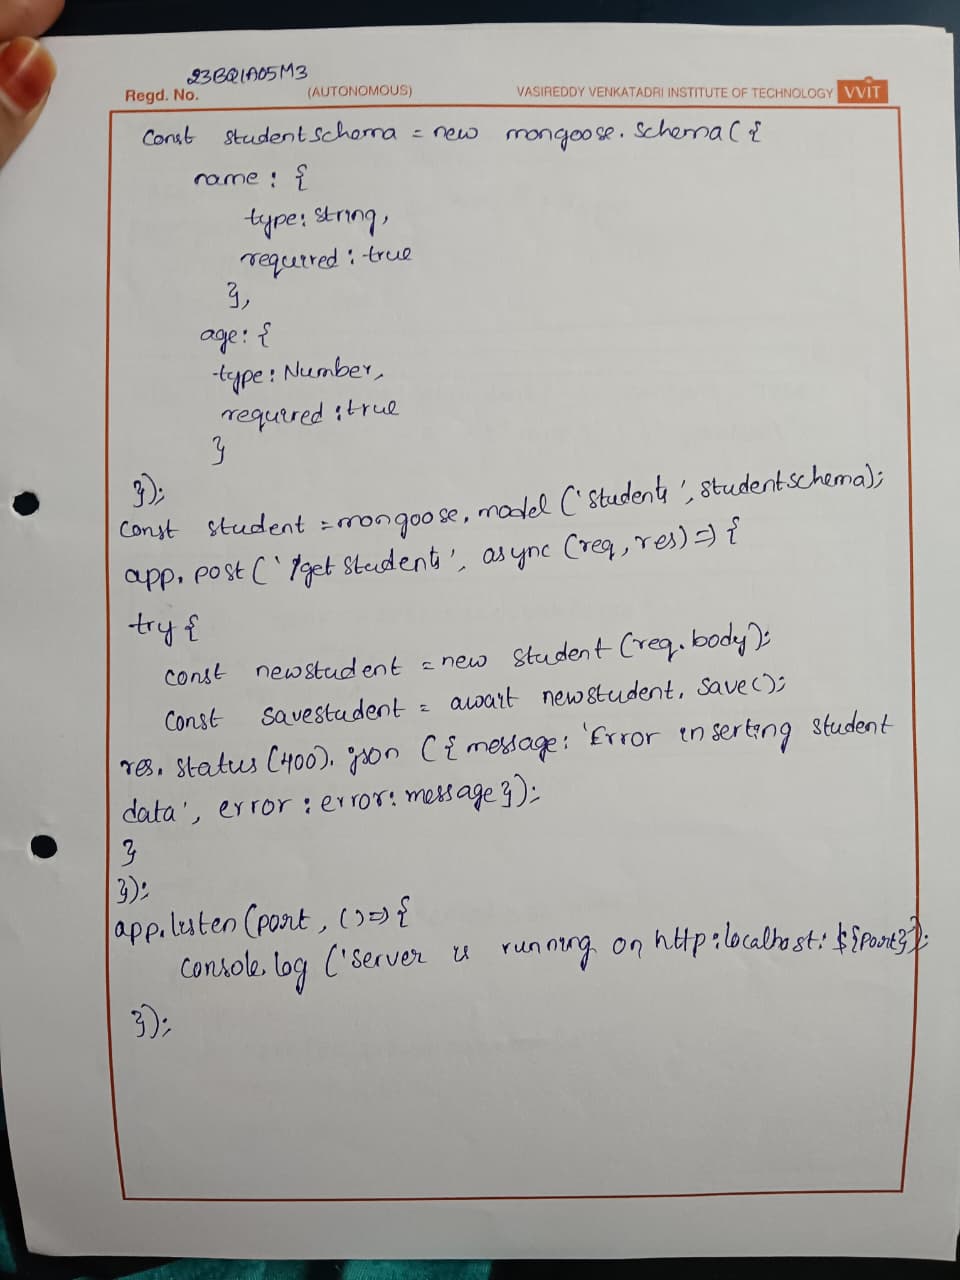 23BQ1A05M3
Regd. No. (AUTONOMOUS) VASIREDDY VENKATADRI INSTITUTE OF TECHNOLOGY VVIT
Const studentschema = new mongoose. Schema ( {
name : {
type: String,
required : true
},
age: {
type: Number,
required : true
}
});
Const student = mongoose. model ('Students', studentschema);
app. post ( '/get Students', async (req, res) => {
try {
const newstudent = new student (req. body);
Const savestudent = await newstudent. save();
res. status (400). json ( { message: 'Error inserting student
data', error : error: message });
}
});
app. listen (port, () => {
Console. log ('Server is running on http:localhost: ${Port}');
});